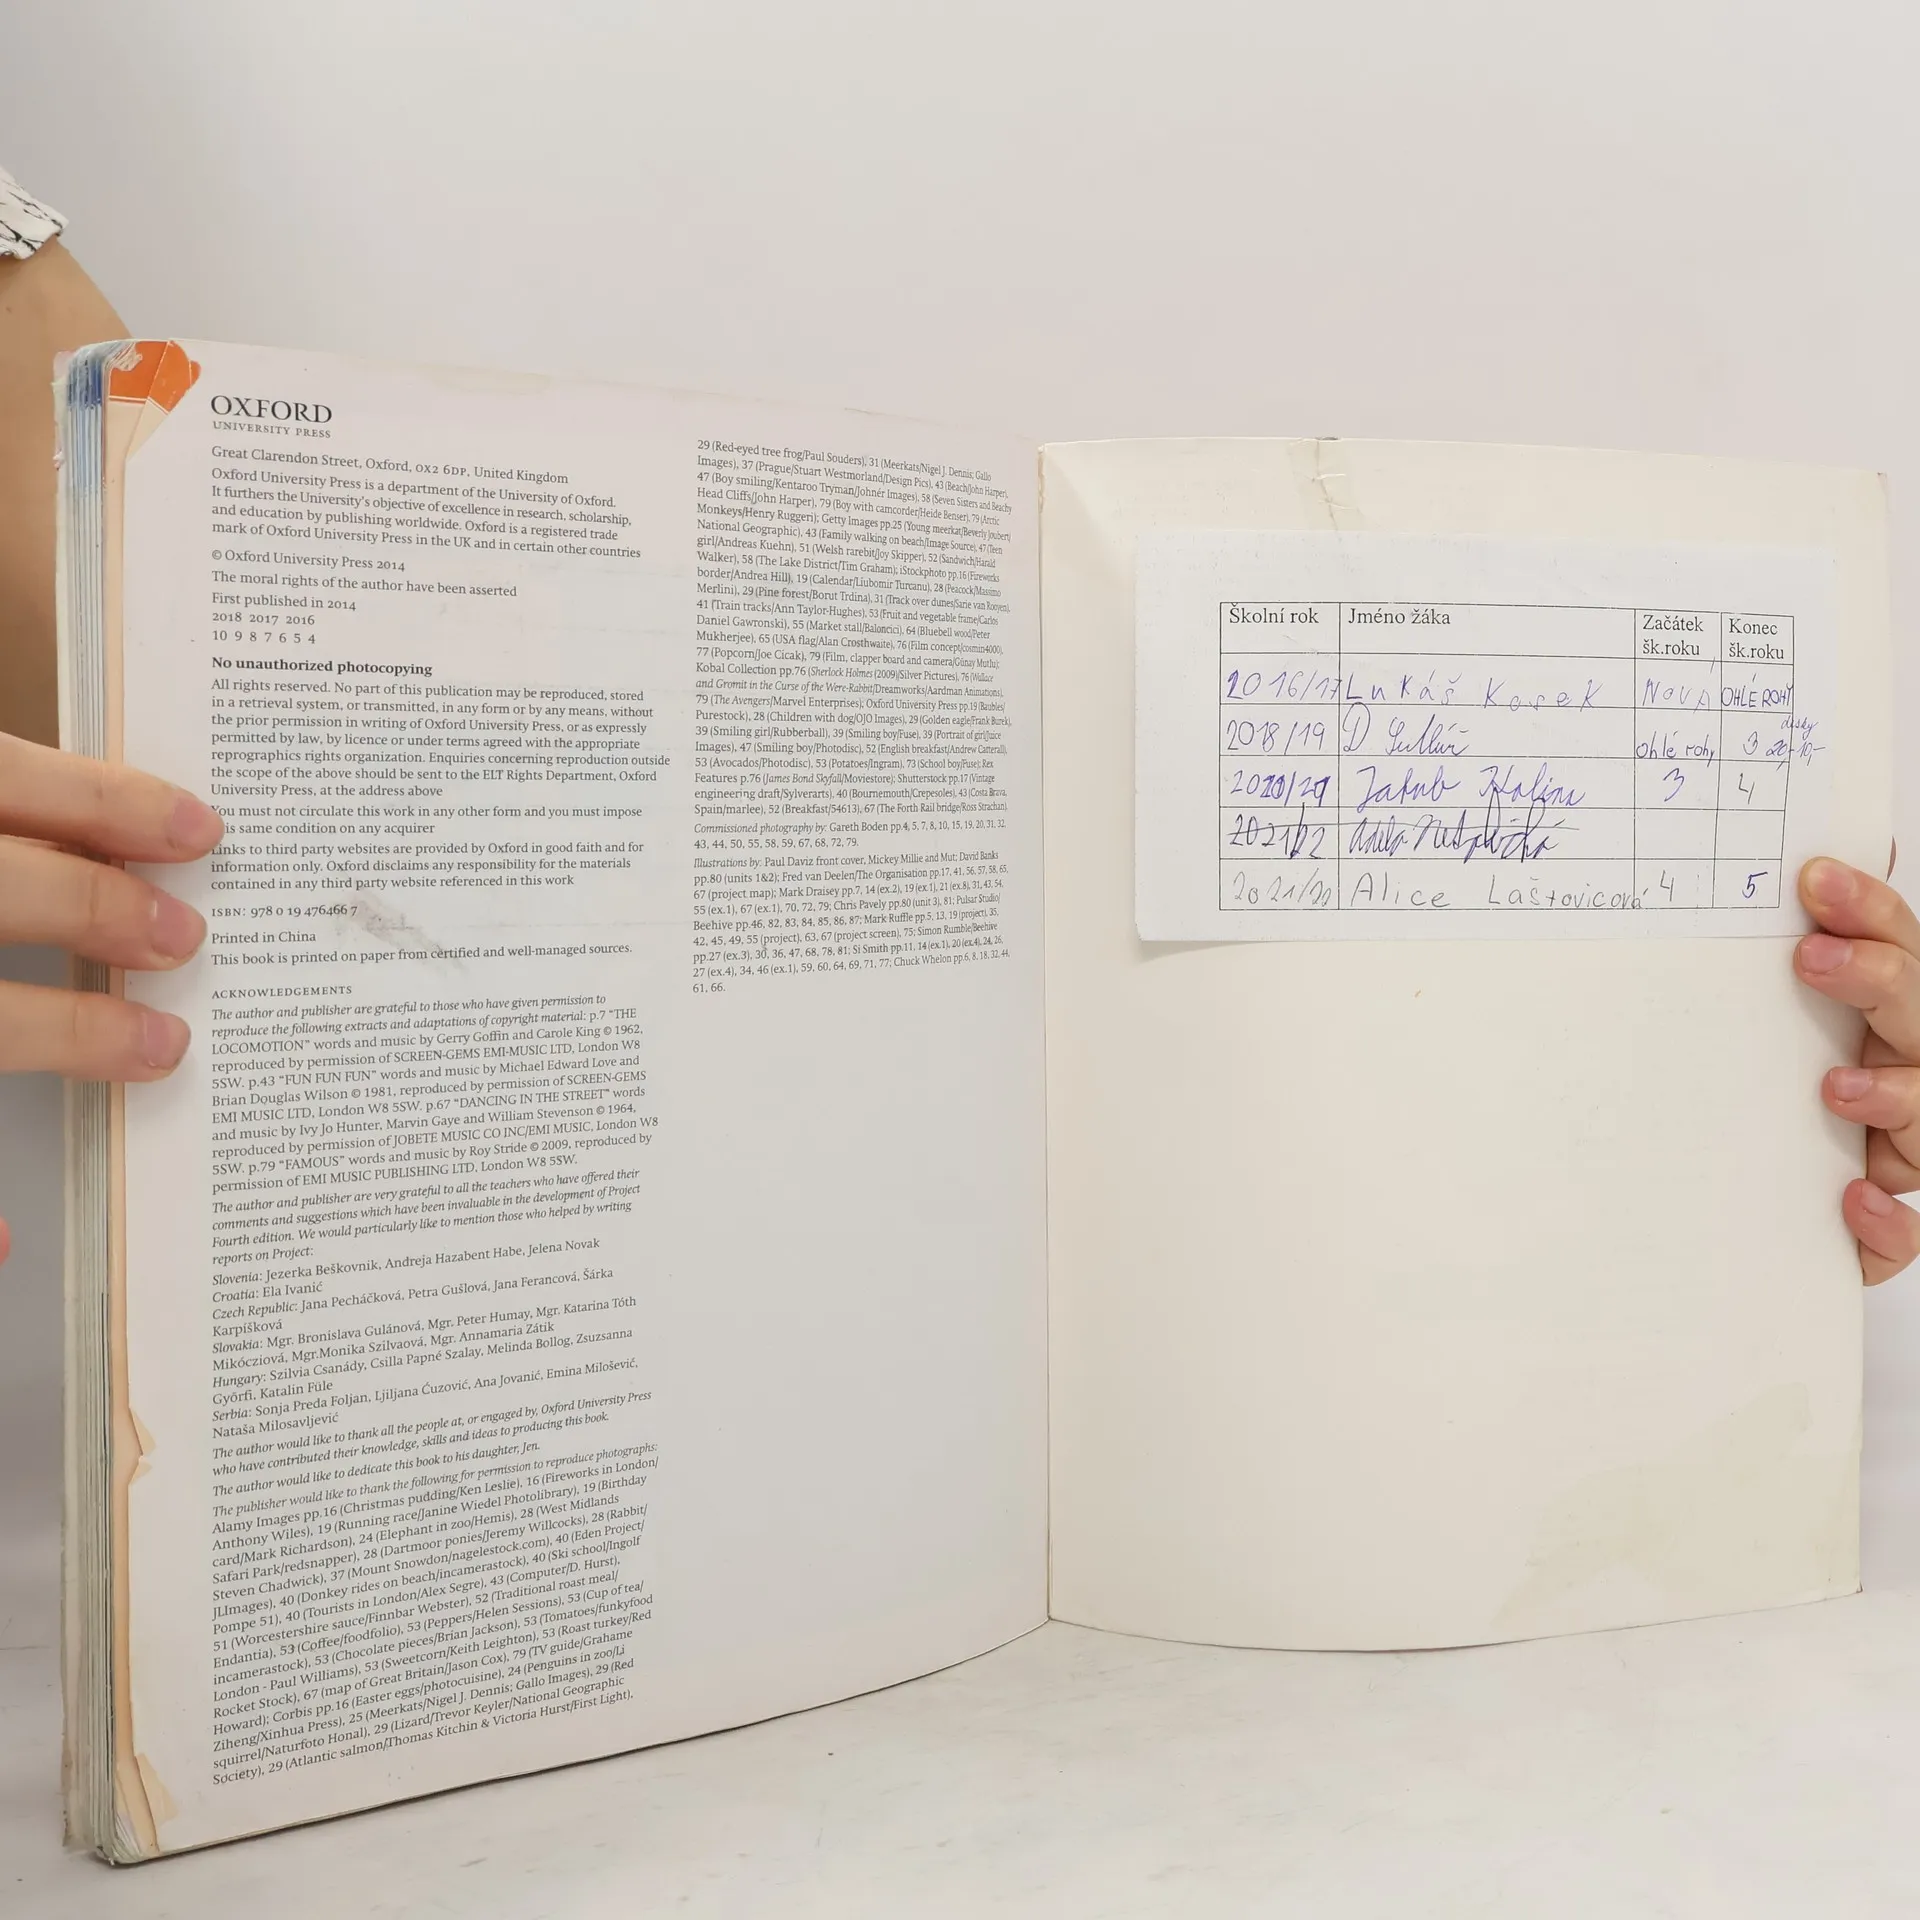 OXFORD
UNIVERSITY PRESS
Great Clarendon Street, Oxford, OX2 6DP, United Kingdom
Oxford University Press is a department of the University of Oxford.
It furthers the University's objective of excellence in research, scholarship,
and education by publishing worldwide. Oxford is a registered trade
mark of Oxford University Press in the UK and in certain other countries
© Oxford University Press 2014
The moral rights of the author have been asserted
First published in 2014
2018 2017 2016
10 9 8 7 6 5 4
No unauthorized photocopying
All rights reserved. No part of this publication may be reproduced, stored
in a retrieval system, or transmitted, in any form or by any means, without
the prior permission in writing of Oxford University Press, or as expressly
permitted by law, by licence or under terms agreed with the appropriate
reprographics rights organization. Enquiries concerning reproduction outside
the scope of the above should be sent to the ELT Rights Department, Oxford
University Press, at the address above
You must not circulate this work in any other form and you must impose
is same condition on any acquirer
Links to third party websites are provided by Oxford in good faith and for
information only. Oxford disclaims any responsibility for the materials
contained in any third party website referenced in this work
ISBN: 978 0 19 476466 7
Printed in China
This book is printed on paper from certified and well-managed sources.
ACKNOWLEDGEMENTS
The author and publisher are grateful to those who have given permission to
reproduce the following extracts and adaptations of copyright material: p.7 "THE
LOCOMOTION" words and music by Gerry Goffin and Carole King © 1962,
reproduced by permission of SCREEN-GEMS EMI-MUSIC LTD, London W8
5SW. p.43 "FUN FUN FUN" words and music by Michael Edward Love and
Brian Douglas Wilson © 1981, reproduced by permission of SCREEN-GEMS
EMI MUSIC LTD, London W8 5SW. p.67 "DANCING IN THE STREET" words
and music by Ivy Jo Hunter, Marvin Gaye and William Stevenson © 1964,
reproduced by permission of JOBETE MUSIC CO INC/EMI MUSIC, London W8
5SW. p.79 "FAMOUS" words and music by Roy Stride © 2009, reproduced by
permission of EMI MUSIC PUBLISHING LTD, London W8 5SW.
The author and publisher are very grateful to all the teachers who have offered their
comments and suggestions which have been invaluable in the development of Project
Fourth edition. We would particularly like to mention those who helped by writing
reports on Project:
Slovenia: Jezerka Beškovnik, Andreja Hazabent Habe, Jelena Novak
Croatia: Ela Ivanić
Czech Republic: Jana Pecháčková, Petra Gušlová, Jana Ferancová, Šárka
Karpíšková
Slovakia: Mgr. Bronislava Gulánová, Mgr. Peter Humay, Mgr. Katarina Tóth
Mikócziová, Mgr.Monika Szilvaová, Mgr. Annamaria Zátik
Hungary: Szilvia Csanády, Csilla Papné Szalay, Melinda Bollog, Zsuzsanna
Győrfi, Katalin Füle
Serbia: Sonja Preda Foljan, Ljiljana Ćuzović, Ana Jovanić, Emina Milošević,
Nataša Milosavljević
The author would like to thank all the people at, or engaged by, Oxford University Press
who have contributed their knowledge, skills and ideas to producing this book.
The author would like to dedicate this book to his daughter, Jen.
The publisher would like to thank the following for permission to reproduce photographs:
Alamy Images pp.16 (Christmas pudding/Ken Leslie), 16 (Fireworks in London/
Anthony Wiles), 19 (Running race/Janine Wiedel Photolibrary), 19 (Birthday
card/Mark Richardson), 24 (Elephant in zoo/Hemis), 28 (West Midlands
Safari Park/redsnapper), 28 (Dartmoor ponies/Jeremy Willcocks), 28 (Rabbit/
Steven Chadwick), 37 (Mount Snowdon/nagelestock.com), 40 (Eden Project/
JLImages), 40 (Donkey rides on beach/incamerastock), 40 (Ski school/Ingolf
Pompe 51), 40 (Tourists in London/Alex Segre), 43 (Computer/D. Hurst),
51 (Worcestershire sauce/Finnbar Webster), 52 (Traditional roast meal/
Endantia), 53 (Coffee/foodfolio), 53 (Peppers/Helen Sessions), 53 (Cup of tea/
incamerastock), 53 (Chocolate pieces/Brian Jackson), 53 (Tomatoes/funkyfood
London - Paul Williams), 53 (Sweetcorn/Keith Leighton), 53 (Roast turkey/Red
Rocket Stock), 67 (map of Great Britain/Jason Cox), 79 (TV guide/Grahame
Howard); Corbis pp.16 (Easter eggs/photocuisine), 24 (Penguins in zoo/Li
Ziheng/Xinhua Press), 25 (Meerkats/Nigel J. Dennis; Gallo Images), 29 (Red
squirrel/Naturfoto Honal), 29 (Lizard/Trevor Keyler/National Geographic
Society), 29 (Atlantic salmon/Thomas Kitchin & Victoria Hurst/First Light),
29 (Red-eyed tree frog/Paul Souders), 31 (Meerkats/Nigel J. Dennis; Gallo
Images), 37 (Prague/Stuart Westmorland/Design Pics), 43 (Beach/John Harper),
47 (Boy smiling/Kentaroo Tryman/Johnér Images), 58 (Seven Sisters and Beachy
Head Cliffs/John Harper), 79 (Boy with camcorder/Heide Benser), 79 (Arctic
Monkeys/Henry Ruggeri); Getty Images pp.25 (Young meerkat/Beverly Joubert/
National Geographic), 43 (Family walking on beach/Image Source), 47 (Teen
girl/Andreas Kuehn), 51 (Welsh rarebit/Joy Skipper), 52 (Sandwich/Harald
Walker), 58 (The Lake District/Tim Graham); iStockphoto pp.16 (Fireworks
border/Andrea Hill), 19 (Calendar/Liubomir Turcanu), 28 (Peacock/Massimo
Merlini), 29 (Pine forest/Borut Trdina), 31 (Track over dunes/Sarie van Rooyen),
41 (Train tracks/Ann Taylor-Hughes), 53 (Fruit and vegetable frame/Carlos
Daniel Gawronski), 55 (Market stall/Baloncici), 64 (Bluebell wood/Peter
Mukherjee), 65 (USA flag/Alan Crosthwaite), 76 (Film concept/cosmin4000),
77 (Popcorn/Joe Cicak), 79 (Film, clapper board and camera/Günay Mutlu);
Kobal Collection pp.76 (Sherlock Holmes (2009)/Silver Pictures), 76 (Wallace
and Gromit in the Curse of the Were-Rabbit/Dreamworks/Aardman Animations),
79 (The Avengers/Marvel Enterprises); Oxford University Press pp.19 (Baubles/
Purestock), 28 (Children with dog/OJO Images), 29 (Golden eagle/Frank Burek),
39 (Smiling girl/Rubberball), 39 (Smiling boy/Fuse), 39 (Portrait of girl/Juice
Images), 47 (Smiling boy/Photodisc), 52 (English breakfast/Andrew Catterall),
53 (Avocados/Photodisc), 53 (Potatoes/Ingram), 73 (School boy/Fuse); Rex
Features p.76 (James Bond Skyfall/Moviestore); Shutterstock pp.17 (Vintage
engineering draft/Sylverarts), 40 (Bournemouth/Crepesoles), 43 (Costa Brava,
Spain/marlee), 52 (Breakfast/54613), 67 (The Forth Rail bridge/Ross Strachan).
Commissioned photography by: Gareth Boden pp.4, 5, 7, 8, 10, 15, 19, 20, 31, 32,
43, 44, 50, 55, 58, 59, 67, 68, 72, 79.
Illustrations by: Paul Daviz front cover, Mickey Millie and Mut; David Banks
pp.80 (units 1&2); Fred van Deelen/The Organisation pp.17, 41, 56, 57, 58, 65,
67 (project map); Mark Draisey pp.7, 14 (ex.2), 19 (ex.1), 21 (ex.8), 31, 43, 54,
55 (ex.1), 67 (ex.1), 70, 72, 79; Chris Pavely pp.80 (unit 3), 81; Pulsar Studio/
Beehive pp.46, 82, 83, 84, 85, 86, 87; Mark Ruffle pp.5, 13, 19 (project), 35,
42, 45, 49, 55 (project), 63, 67 (project screen), 75; Simon Rumble/Beehive
pp.27 (ex.3), 30, 36, 47, 68, 78, 81; Si Smith pp.11, 14 (ex.1), 20 (ex.4), 24, 26,
27 (ex.4), 34, 46 (ex.1), 59, 60, 64, 69, 71, 77; Chuck Whelon pp.6, 8, 18, 32, 44,
61, 66.
Školní rok Jméno žáka Začátek šk.roku Konec šk.roku
2016/17 Lukáš Kosek NOVÁ OHLÉ ROHY
2018/19 D ohlé rohy 3 desky 20,- 10,-
2020/21 Jakub Kalina 3 4
2021/22 Adéla
2021/22 Alice Laštovicová 4 5